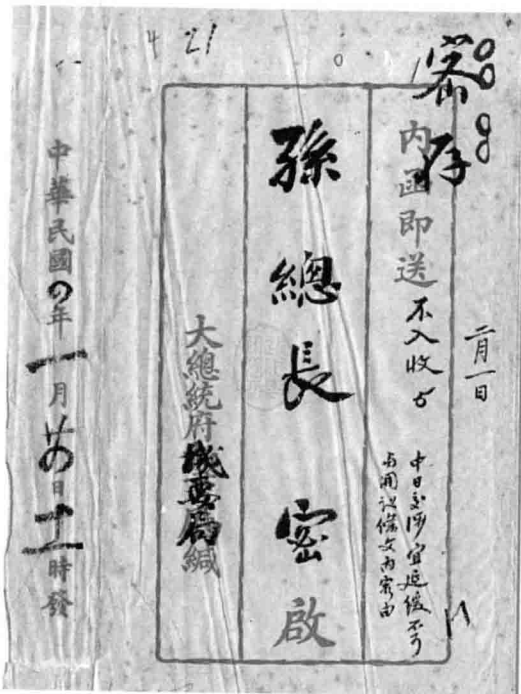 4 21
密存
二月一日
內函即送 不入收
中日交涉宜延緩不可
內容由
孫總長 密啟
大總統府機要局緘
中華民國四年一月廿四日十二時發